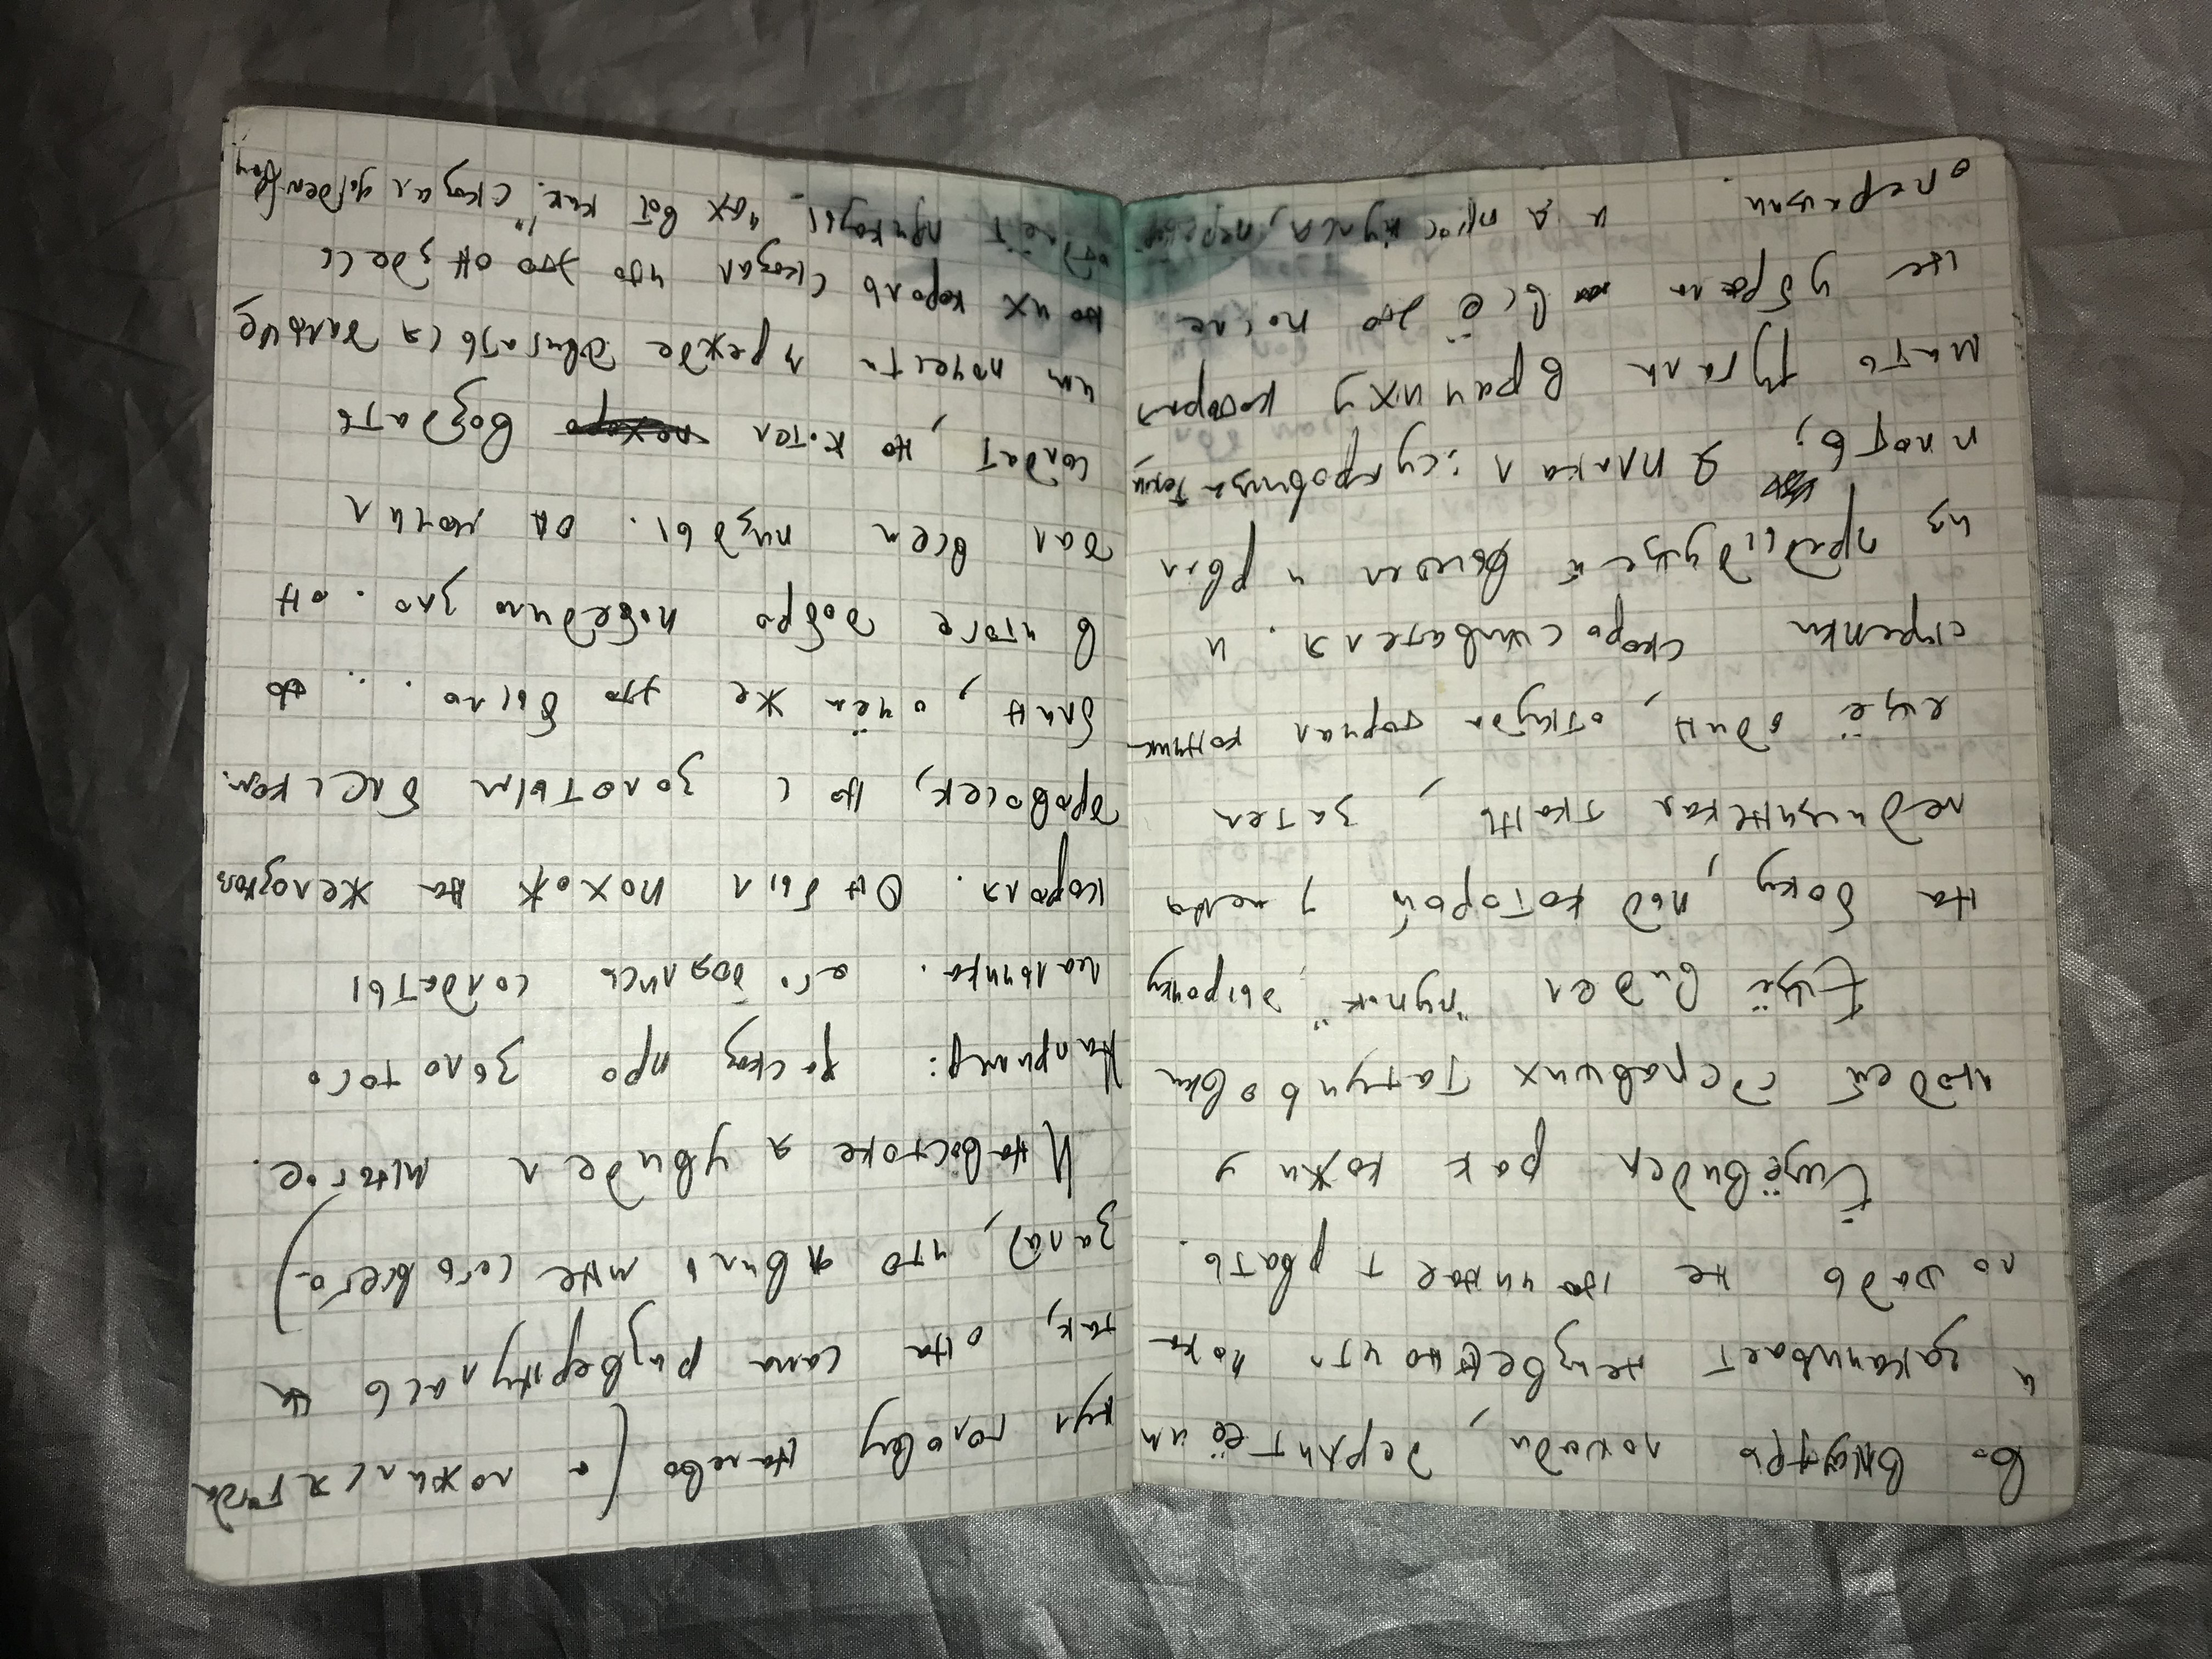 в. внутрь лошади, держит её им
и закачивает неизвестно что пока
лошадь не начинает рвать.
Ещё видел рак кожи у
людей сделавших татуировки
Ещё видел "пупок", дырочку
на боку, под которой у меня
медицинская ткань, затем
ещё один, откуда торчал кончик
скрепки скоросшивателя. и
из предыдущей вышел и рвал
плоть; я плакал : сукровица текла,
мать ругала врачиху которая
не убрала всё это после
операции. и я проснулся, перевер
нул голову налево (а ложился тогда
так, она сама развернулась на
запад, что явило мне сеть всего)
И на востоке я увидел многое.
Например: расказ про золотого
мальчика. его боялись солдаты
короля. Он был похож на железного
дровосек, но с золотым блеском.
блин, о чём же это было... но
в итоге добро победило зло. он
дал всем пизды. он мочил
солдат, но хотел воздать
им почести прежде двигаться дальше,
но их король сказал что это он здесь
отдаёт приказы. "ах вот как!" сказал golden boy.